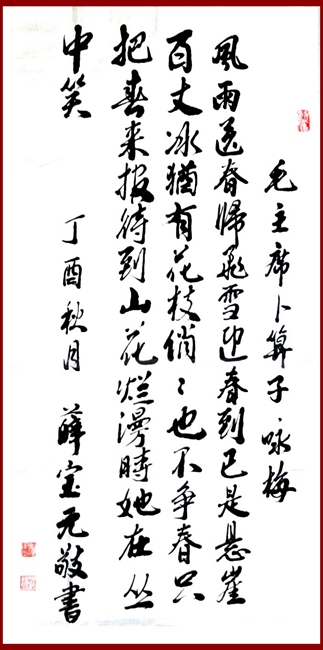 毛主席卜算子咏梅
風雨送春歸飛雪迎春到已是悬崖
百丈冰猶有花枝俏〻也不争春只
把春来报待到山花烂漫時她在丛
中笑 丁酉秋月 薛宝元敬書